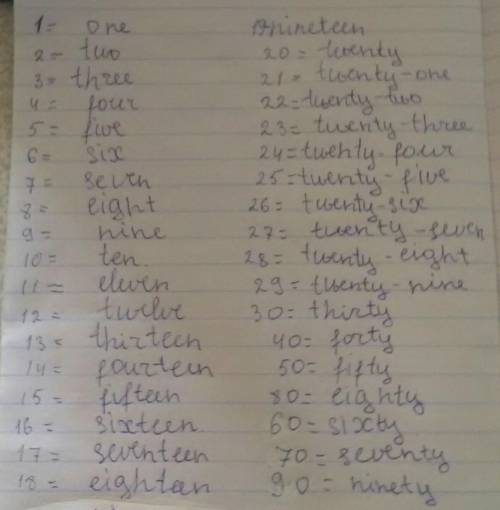 1= one
2= two
3= three
4= four
5= five
6= six
7= seven
8= eight
9= nine
10= ten.
11= eleven
12= twelve
13= thirteen
14= fourteen
15= fifteen
16= sixteen.
17= seventeen
18= eighteen
19nineteen
20= twenty
21= twenty-one
22= twenty-two
23= twenty-three
24= twenty-four
25= twenty-five
26= twenty-six
27= twenty-seven
28= twenty-eight
29= twenty-nine
30= thirty
40= forty
50= fifty
80= eighty
60= sixty
70= seventy
90= ninety